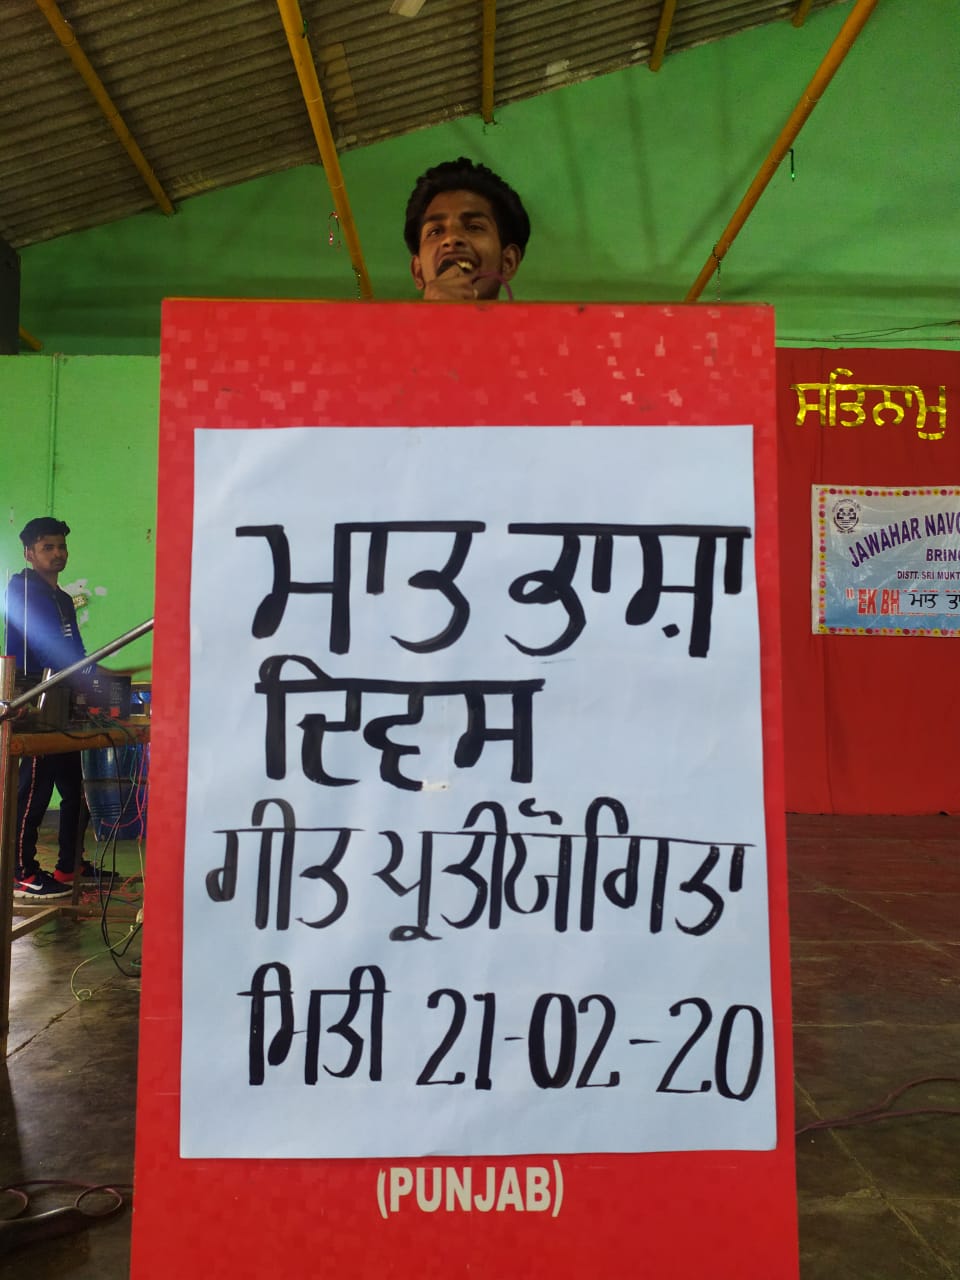 ਮਾਤ ਭਾਸ਼ਾ
ਦਿਵਸ
ਗੀਤ ਪ੍ਰਤੀਯੋਗਿਤਾ
ਮਿਤੀ 21-02-20
(PUNJAB)
ਸਤਿਨਾਮੁ
JAWAHAR NAVO
BRING
DISTT. SRI MUKT
"EK BH
ਮਾਤ ਤਾ